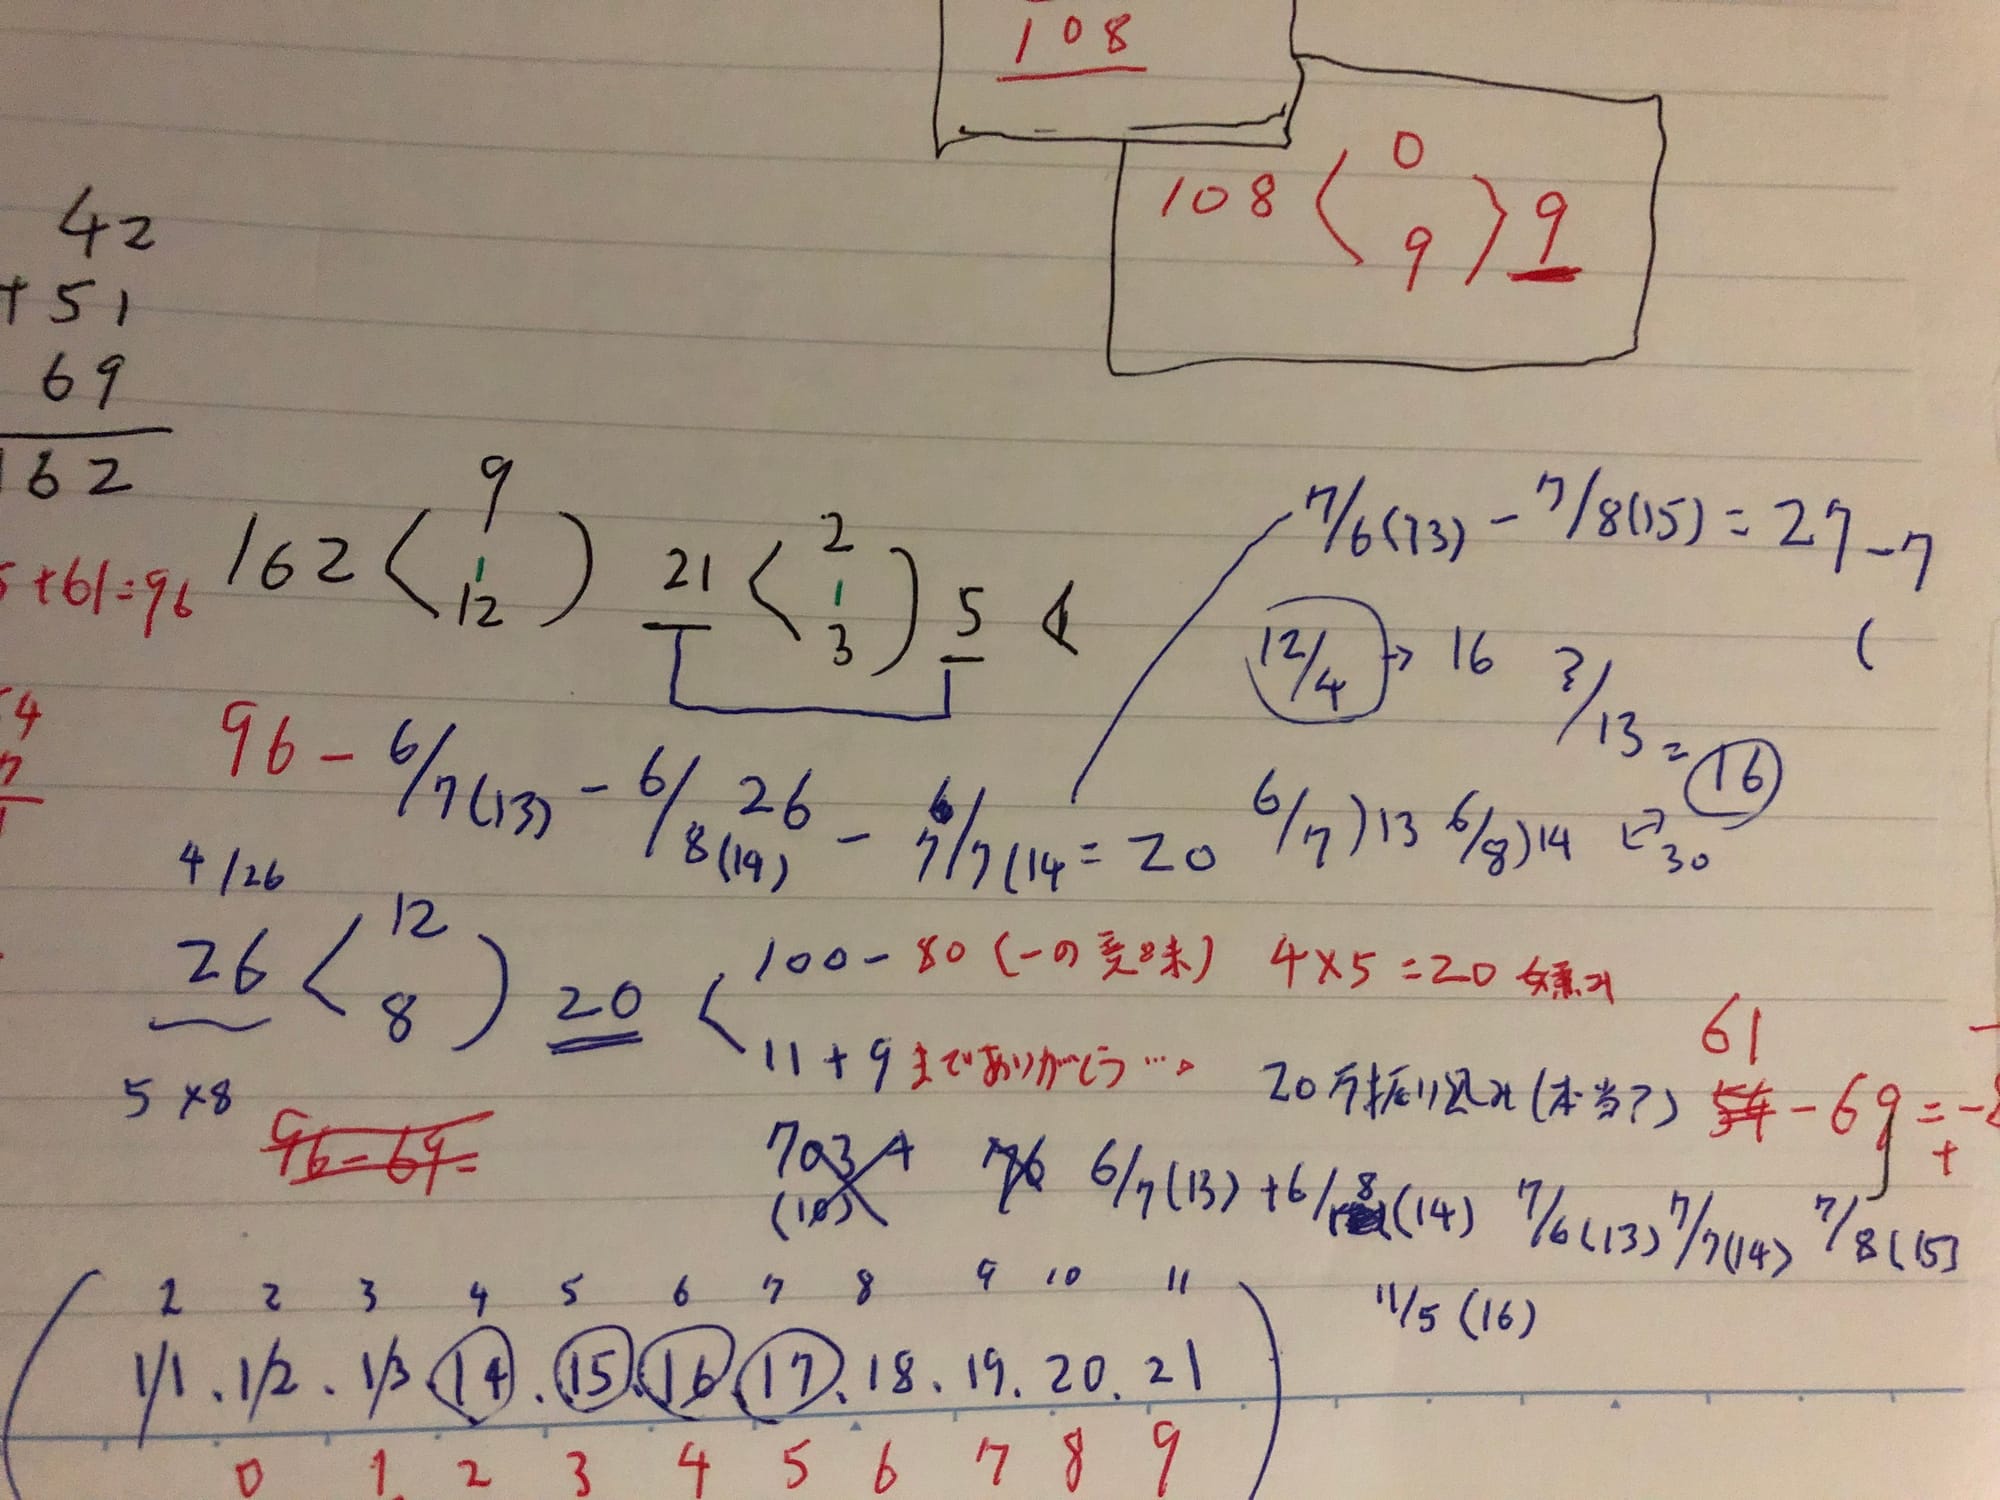 108
108 < 0 9 > 9
42
+51
69
162
+61=96
162 < 9 1 12 ) 21 < 2 1 3 ) 5
7/6(13) - 7/8(15) = 27 - 7
12/4 → 16
/13 = 16
4
96 - 6/7(13) - 6/8(14) 26 - 7/7(14 = 20
6/7)13 6/8)14
30
4/26
26 < 12 8 ) 20 <
100 - 80 (一の意味) 4×5=20
11 + 9 までありがとう…。
20万振り込み(本当?)
61
54 - 69 = -
+
5×8
96-69=
703
76 6/7(13) + 6/8(14) 7/6(13) 7/7(14) 7/8(15)
11/5(16)
2 2 3 4 5 6 7 8 9 10 11
( 1/1 . 1/2 . 1/3 . 14 . 15 . 16 . 17 . 18 . 19 . 20 . 21 )
0 1 2 3 4 5 6 7 8 9